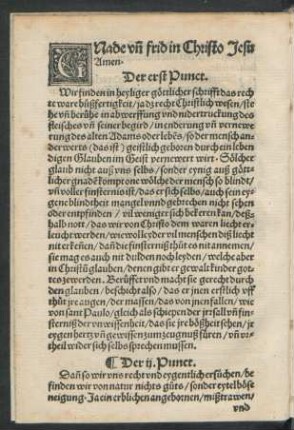 GNade vñ frid in Christo Jesu
Amen.
Der erst Punct.
Wir finden in heyliger göttlicher schrifft das rech
te ware büßfertigkeit / ja dz recht Christlich wesen / ste
he vñ berühe in abwerffung vnd nidertruckung des
fleisches vñ seiner begird / in enderung vñ vernewe
rung des alten Adams oder lebēs / so der mensch an-
derwerts (das ist) geistlich geboren durch ein leben
digen Glauben im Geist vernewert wirt. Sölcher
glaub nicht auß vns selbs / sonder eynig auß gött-
licher gnadē kompt on wölche der mensch so blindt /
vñ voller finsternis ist / das er sich selbs / auch sein ey
gene blindtheit mangel vnnd gebrechen nicht sehen
oder entpfinden / vil weniger sich bekeren kan / deß-
halb nott / das wir von Christo dem waren liecht er
leücht werden / wie wol der vil menschen diß liecht
nit erkeñen / dañ die finsternüß thüt es nit annemen /
sie mag es auch nit dulden noch leyden / welche aber
in Christũ glauben / denen gibt er gewalt kinder got
tes zewerden. Berüfft vnd macht sie gerecht durch
den glauben / beschicht also / das er jnen erstlich vff
thüt jre augen / der massen / das von jnen fallen / wie
von sant Paulo / gleich als schiepen der jrrsall vñ fin-
sternüß der vnwissenheit / das sie jre bößheit sehen / je
eygen hertz vñ gewissen zum zeugnuß füren / vñ vr-
theil wider sich selbs sprechen mussen.
¶ Der ij. Punct.
Dañ so wir vns recht vnd eygentlich ersüchen / be
finden wir von natur nichts güts / sonder eytel böse
neigung. Ja ein erblichen angebornen / mißtrawen /
vnd